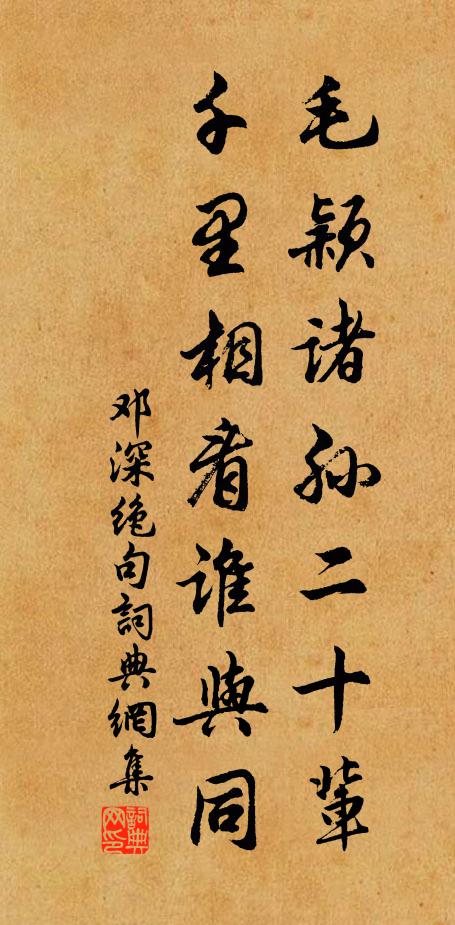 毛颖诸孙二十辈
千里相看谁与同
邓深绝句词典网集
词典网印